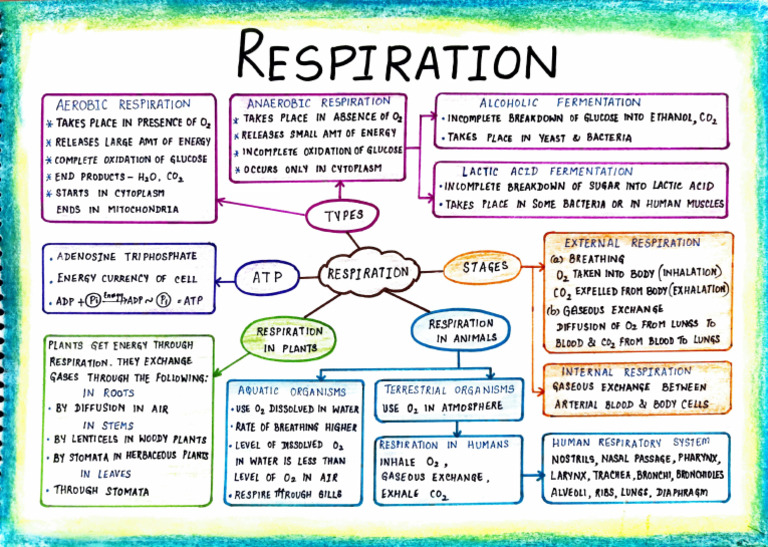 RESPIRATION
AEROBIC RESPIRATION
* TAKES PLACE IN PRESENCE OF O₂
* RELEASES LARGE AMT OF ENERGY
* COMPLETE OXIDATION OF GLUCOSE
* END PRODUCTS - H₂O, CO₂
* STARTS IN CYTOPLASM
ENDS IN MITOCHONDRIA
ANAEROBIC RESPIRATION
* TAKES PLACE IN ABSENCE OF O₂
* RELEASES SMALL AMT OF ENERGY
* INCOMPLETE OXIDATION OF GLUCOSE
* OCCURS ONLY IN CYTOPLASM
ALCOHOLIC FERMENTATION
• INCOMPLETE BREAKDOWN OF GLUCOSE INTO ETHANOL, CO₂
• TAKES PLACE IN YEAST & BACTERIA
LACTIC ACID FERMENTATION
• INCOMPLETE BREAKDOWN OF SUGAR INTO LACTIC ACID
• TAKES PLACE IN SOME BACTERIA OR IN HUMAN MUSCLES
TYPES
• ADENOSINE TRIPHOSPHATE
• ENERGY CURRENCY OF CELL
• ADP + Pi Energy→ADP ~ Pi = ATP
ATP
RESPIRATION
STAGES
EXTERNAL RESPIRATION
(a) BREATHING
O₂ TAKEN INTO BODY (INHALATION)
CO₂ EXPELLED FROM BODY (EXHALATION)
(b) GASEOUS EXCHANGE
DIFFUSION OF O₂ FROM LUNGS TO
BLOOD & CO₂ FROM BLOOD TO LUNGS
INTERNAL RESPIRATION
GASEOUS EXCHANGE BETWEEN
ARTERIAL BLOOD & BODY CELLS
RESPIRATION
IN PLANTS
RESPIRATION
IN ANIMALS
PLANTS GET ENERGY THROUGH
RESPIRATION. THEY EXCHANGE
GASES THROUGH THE FOLLOWING:
IN ROOTS
• BY DIFFUSION IN AIR
IN STEMS
• BY LENTICELS IN WOODY PLANTS
• BY STOMATA IN HERBACEOUS PLANTS
IN LEAVES
• THROUGH STOMATA
AQUATIC ORGANISMS
• USE O₂ DISSOLVED IN WATER
• RATE OF BREATHING HIGHER
• LEVEL OF DISSOLVED O₂
IN WATER IS LESS THAN
LEVEL OF O₂ IN AIR
• RESPIRE THROUGH GILLS
TERRESTRIAL ORGANISMS
USE O₂ IN ATMOSPHERE
RESPIRATION IN HUMANS
INHALE O₂,
GASEOUS EXCHANGE,
EXHALE CO₂
HUMAN RESPIRATORY SYSTEM
NOSTRILS, NASAL PASSAGE, PHARYNX,
LARYNX, TRACHEA, BRONCHI, BRONCHIOLES
ALVEOLI, RIBS, LUNGS, DIAPHRAGM